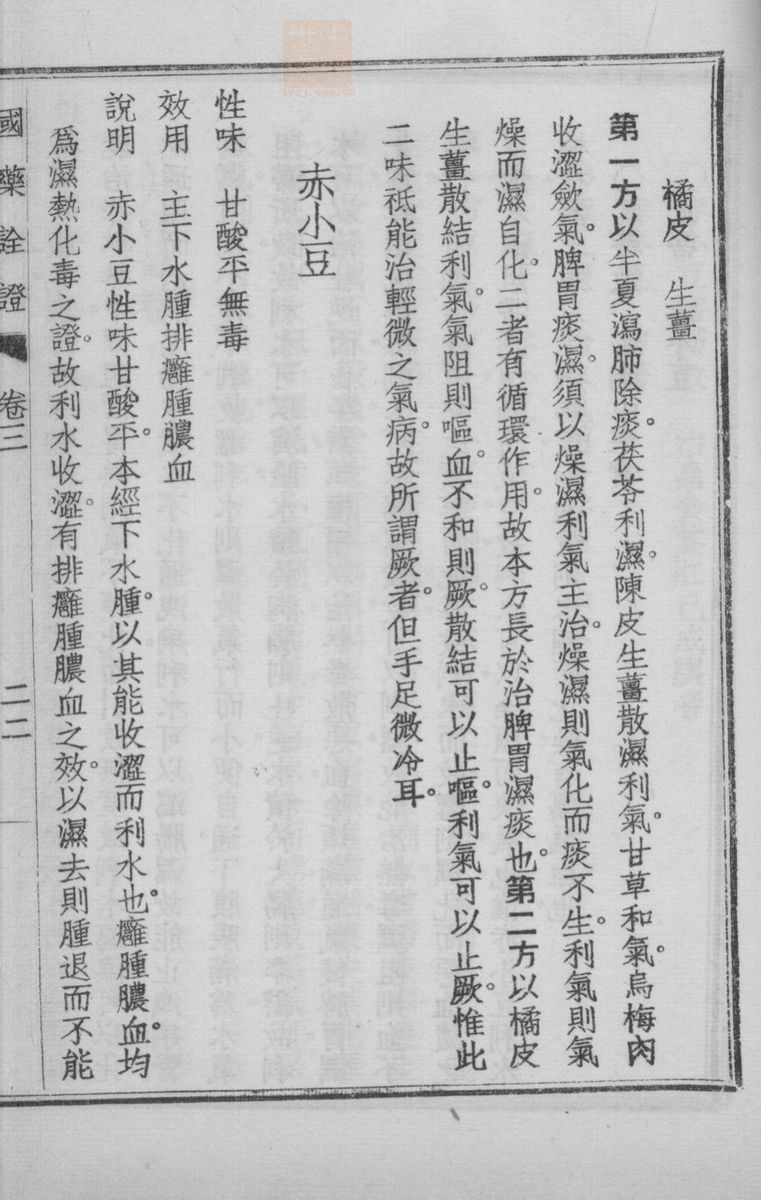 橘皮　生薑
第一方以半夏瀉肺除痰。茯苓利濕。陳皮生薑散濕利氣。甘草和氣。烏梅肉
收澀斂氣。脾胃痰濕。須以燥濕利氣主治。燥濕則氣化而痰不生。利氣則氣
燥而濕自化。二者有循環作用。故本方長於治脾胃濕痰也。第二方以橘皮
生薑散結利氣。氣阻則嘔。血不和則厥。散結可以止嘔。利氣可以止厥。惟此
二味祗能治輕微之氣病。故所謂厥者。但手足微冷耳。
赤小豆
性味　甘酸平無毒
效用　主下水腫排癰腫膿血
說明　赤小豆性味甘酸平。本經下水腫。以其能收澀而利水也。癰腫膿血。均
爲濕熱化毒之證。故利水收澀。有排癰腫膿血之效。以濕去則腫退而不能
國藥詮證　卷三　二二